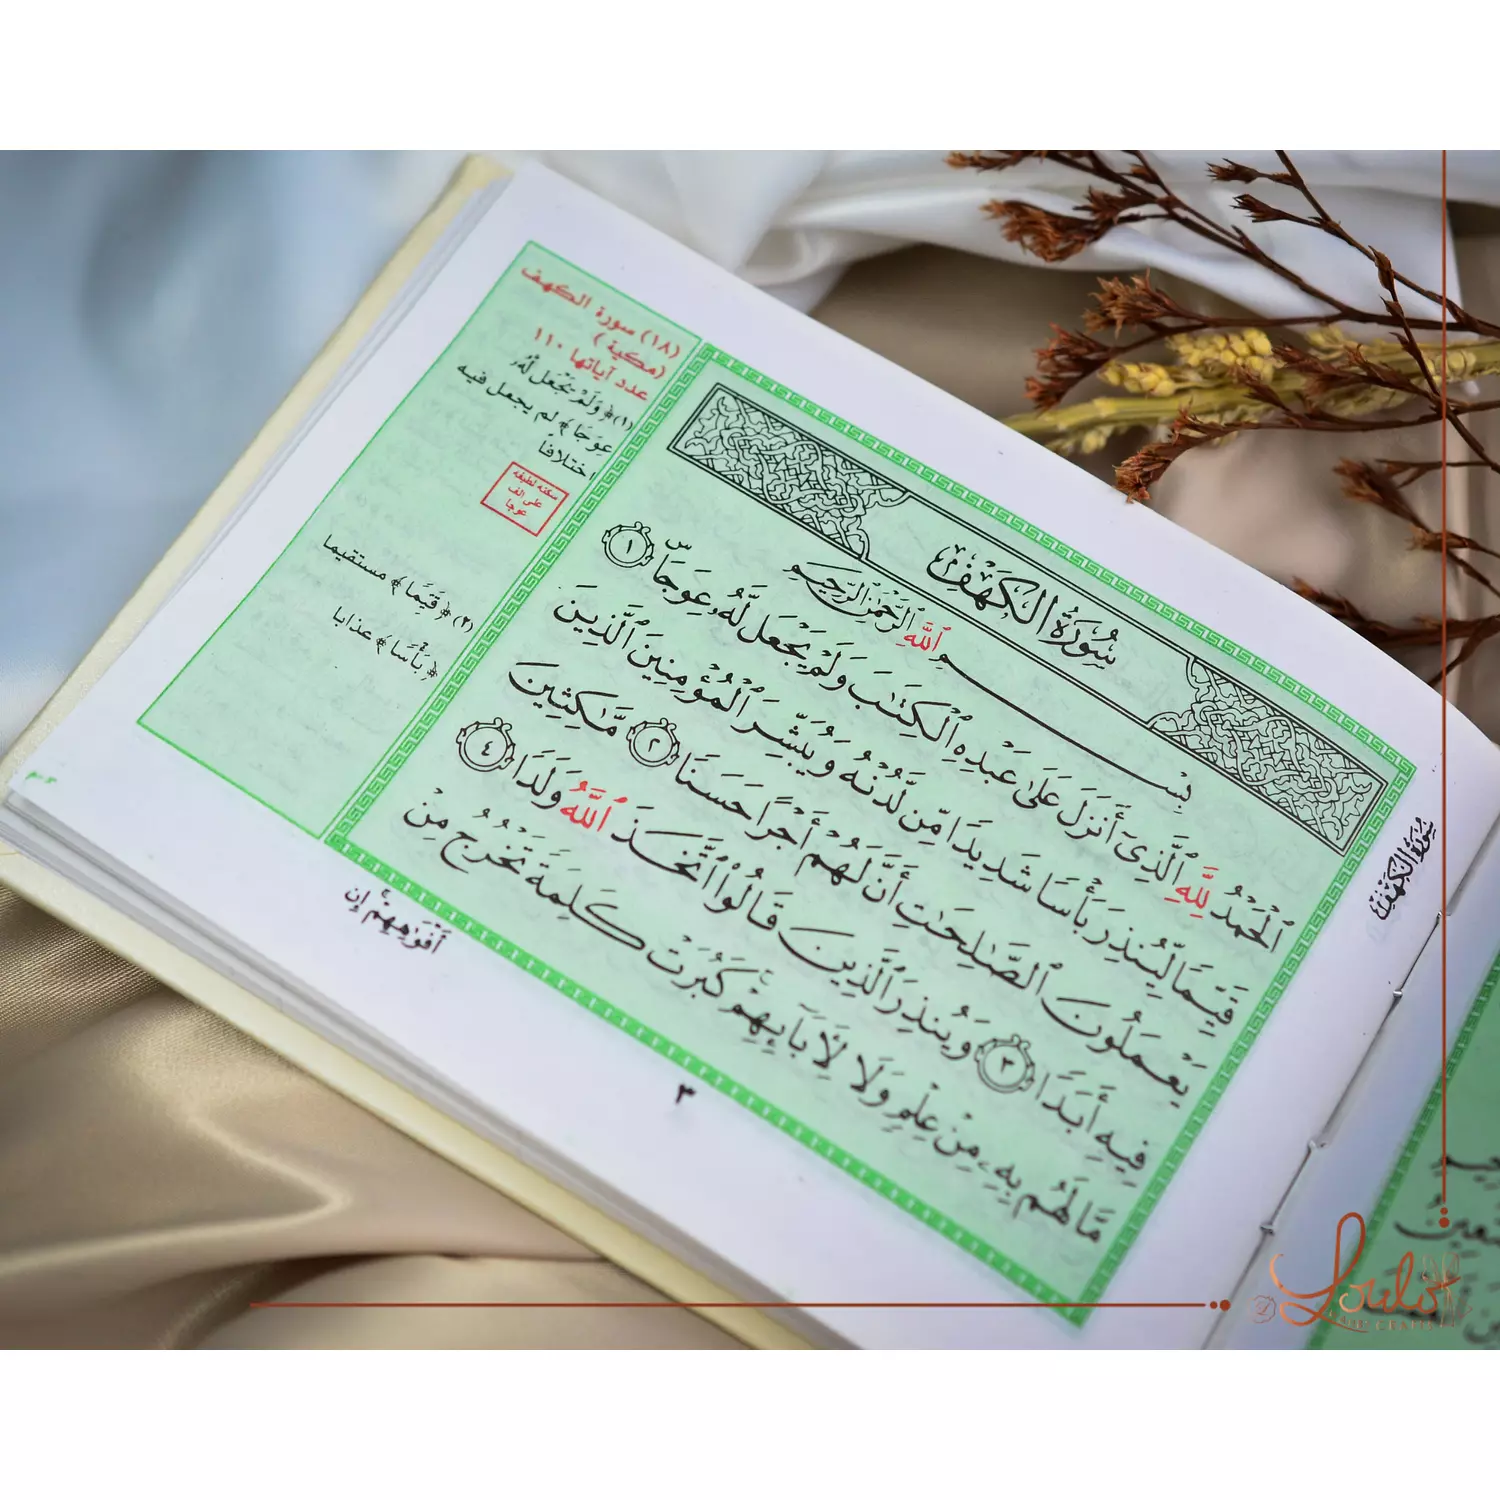 سُورَةُ الكَهْفِ
بِسْمِ ٱللَّهِ ٱلرَّحْمَٰنِ ٱلرَّحِيمِ
ٱلْحَمْدُ لِلَّهِ ٱلَّذِىٓ أَنزَلَ عَلَىٰ عَبْدِهِ ٱلْكِتَٰبَ وَلَمْ يَجْعَل لَّهُۥ عِوَجَاۜ ١
قَيِّمًا لِّيُنذِرَ بَأْسًا شَدِيدًا مِّن لَّدُنْهُ وَيُبَشِّرَ ٱلْمُؤْمِنِينَ ٱلَّذِينَ
يَعْمَلُونَ ٱلصَّٰلِحَٰتِ أَنَّ لَهُمْ أَجْرًا حَسَنًا ٢ مَّٰكِثِينَ
فِيهِ أَبَدًا ٣ وَيُنذِرَ ٱلَّذِينَ قَالُوا۟ ٱتَّخَذَ ٱللَّهُ وَلَدًا ٤
مَّا لَهُم بِهِۦ مِنْ عِلْمٍ وَلَا لِأٓبَآئِهِمْ ۚ كَبُرَتْ كَلِمَةً تَخْرُجُ مِنْ
(١٨) سورة الكهف
(مكية)
عدد آياتها ١١٠
(١) ﴿وَلَمْ يَجْعَل لَّهُۥ
عِوَجَا﴾ لم يجعل فيه
اختلافاً
سكته لطيفه
على الف
عوجا
(٢) ﴿قَيِّمًا﴾ مستقيما
﴿بَأْسًا﴾ عذابا
أَفْوَٰهِهِمْ ۚ إِن
٣
سُورَةُ الكَهْفِ
Loulo